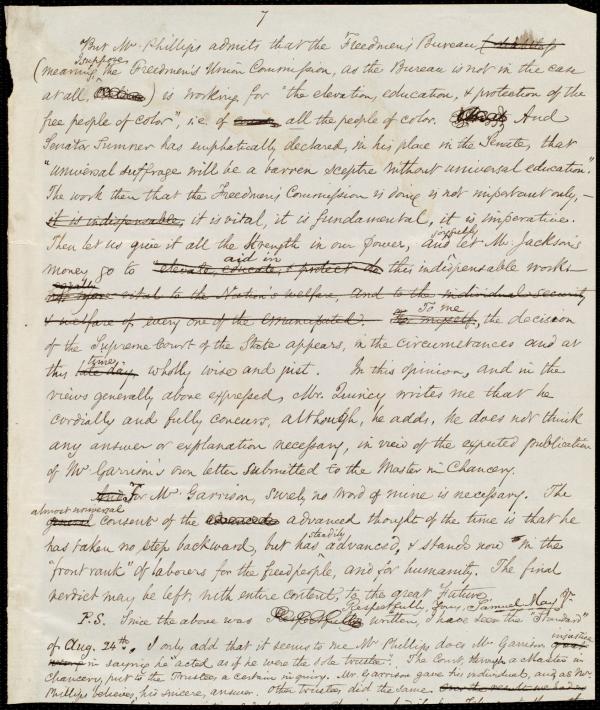 7
But Mr. Phillips admits that the Freedmen's Bureau
(meaning, I suppose, the Freedmen's Union Commission, as the Bureau is not in the case
at all,) is working for "the elevation, education, & protection of the
free people of color", i.e. of all the people of color. And
Senator Sumner has emphatically declared, in his place in the Senate, that
"universal suffrage will be a barren sceptre without universal education."
The work then that the Freedmen's Commission is doing is not important only, –
it is indispensable, it is vital, it is fundamental, it is imperative.
Then let us give it all the strength in our power, and let Mr. Jackson's
money go to aid in elevate, educate, & protect the this indispensable work –
vital to the Nation's welfare, and to the individual security
& welfare of every one of the emancipated. To myself, To me, the decision
of the Supreme Court of the State appears, in the circumstances and at
this late day, time, wholly wise and just. In this opinion, and in the
views generally above expressed, Mr. Quincy writes me that he
cordially and fully concurs, although, he adds, he does not think
any answer or explanation necessary, in view of the expected publication
of Mr. Garrison's own letter submitted to the Master in Chancery.
And For Mr. Garrison, surely no word of mine is necessary. The
almost universal
general consent of the advanced thought of the time is that he
has taken no step backward, but has steadily advanced, & stands now in the
"front rank" of laborers for the freedpeople, and for humanity. The final
verdict may be left, with entire content, to the great Future.
Respectfully, Yours, Samuel May, Jr.
P.S. Since the above was written, I have seen the "Standard"
of Aug. 24th. I only add that it seems to me Mr Phillips does Mr Garrison injustice
in saying he "acted as if he were the sole trustee." The Court, through a Master in
Chancery, put to the Trustees a certain inquiry. Mr. Garrison gave his individual, and, as Mr.
Phillips believes, his sincere, answer. Other trustees did the same.